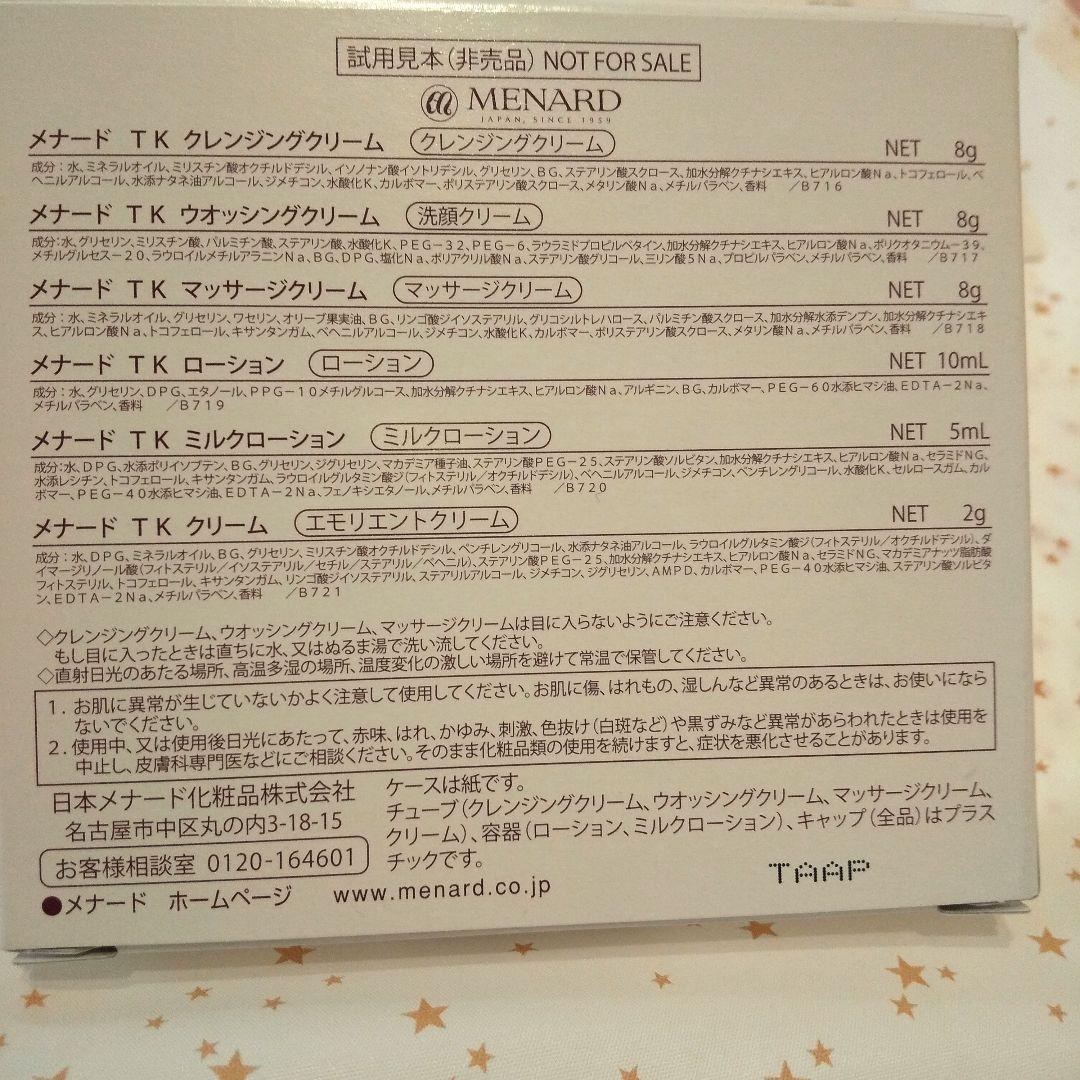 試用見本(非売品) NOT FOR SALE
MENARD
JAPAN, SINCE 1959
メナード TK クレンジングクリーム クレンジングクリーム NET 8g
成分:水、ミネラルオイル、ミリスチン酸オクチルドデシル、イソノナン酸イソトリデシル、グリセリン、BG、ステアリン酸スクロース、加水分解クチナシエキス、ヒアルロン酸Na、トコフェロール、ベ
ヘニルアルコール、水添ナタネ油アルコール、ジメチコン、水酸化K、カルボマー、ポリステアリン酸スクロース、メタリン酸Na、メチルパラベン、香料 /B716
メナード TK ウオッシングクリーム 洗顔クリーム NET 8g
成分:水、グリセリン、ミリスチン酸、パルミチン酸、ステアリン酸、水酸化K、PEG-32、PEG-6、ラウラミドプロピルベタイン、加水分解クチナシエキス、ヒアルロン酸Na、ポリクオタニウム-39、
メチルグルセス-20、ラウロイルメチルアラニンNa、BG、DPG、塩化Na、ポリアクリル酸Na、ステアリン酸グリコール、三リン酸5Na、プロピルパラベン、メチルパラベン、香料 /B717
メナード TK マッサージクリーム マッサージクリーム NET 8g
成分:水、ミネラルオイル、グリセリン、ワセリン、オリーブ果実油、BG、リンゴ酸ジイソステアリル、グリコシルトレハロース、パルミチン酸スクロース、加水分解水添デンプン、加水分解クチナシエキ
ス、ヒアルロン酸Na、トコフェロール、キサンタンガム、ベヘニルアルコール、ジメチコン、水酸化K、カルボマー、ポリステアリン酸スクロース、メタリン酸Na、メチルパラベン、香料 /B718
メナード TK ローション ローション NET 10mL
成分:水、グリセリン、DPG、エタノール、PPG-10メチルグルコース、加水分解クチナシエキス、ヒアルロン酸Na、アルギニン、BG、カルボマー、PEG-60水添ヒマシ油、EDTA-2Na、
メチルパラベン、香料 /B719
メナード TK ミルクローション ミルクローション NET 5mL
成分:水、DPG、水添ポリイソブテン、BG、グリセリン、ジグリセリン、マカデミア種子油、ステアリン酸PEG-25、ステアリン酸ソルビタン、加水分解クチナシエキス、ヒアルロン酸Na、セラミドNG、
水添レシチン、トコフェロール、キサンタンガム、ラウロイルグルタミン酸ジ(フィトステリル/オクチルドデシル)、ベヘニルアルコール、ジメチコン、ペンチレングリコール、水酸化K、セルロースガム、カル
ボマー、PEG-40水添ヒマシ油、EDTA-2Na、フェノキシエタノール、メチルパラベン、香料 /B720
メナード TK クリーム エモリエントクリーム NET 2g
成分:水、DPG、ミネラルオイル、BG、グリセリン、ミリスチン酸オクチルドデシル、ペンチレングリコール、水添ナタネ油アルコール、ラウロイルグルタミン酸ジ(フィトステリル/オクチルドデシル)、ダ
イマージリノール酸(フィトステリル/イソステアリル/セチル/ステアリル/ベヘニル)、ステアリン酸PEG-25、加水分解クチナシエキス、ヒアルロン酸Na、セラミドNG、マカデミアナッツ脂肪酸
フィトステリル、トコフェロール、キサンタンガム、リンゴ酸ジイソステアリル、ステアリルアルコール、ジメチコン、ジグリセリン、AMPD、カルボマー、PEG-40水添ヒマシ油、ステアリン酸ソルビタ
ン、EDTA-2Na、メチルパラベン、香料 /B721
◇クレンジングクリーム、ウオッシングクリーム、マッサージクリームは目に入らないようにご注意ください。
もし目に入ったときは直ちに水、又はぬるま湯で洗い流してください。
◇直射日光のあたる場所、高温多湿の場所、温度変化の激しい場所を避けて常温で保管してください。
1. お肌に異常が生じていないかよく注意して使用してください。お肌に傷、はれもの、湿しんなど異常のあるときは、お使いになら
ないでください。
2. 使用中、又は使用後日光にあたって、赤味、はれ、かゆみ、刺激、色抜け(白斑など)や黒ずみなど異常があらわれたときは使用を
中止し、皮膚科専門医などにご相談ください。そのまま化粧品類の使用を続けますと、症状を悪化させることがあります。
日本メナード化粧品株式会社
名古屋市中区丸の内3-18-15
お客様相談室 0120-164601
●メナード ホームページ www.menard.co.jp
ケースは紙です。
チューブ(クレンジングクリーム、ウオッシングクリーム、マッサージクリーム、
クリーム)、容器(ローション、ミルクローション)、キャップ(全品)はプラス
チックです。
TAAP